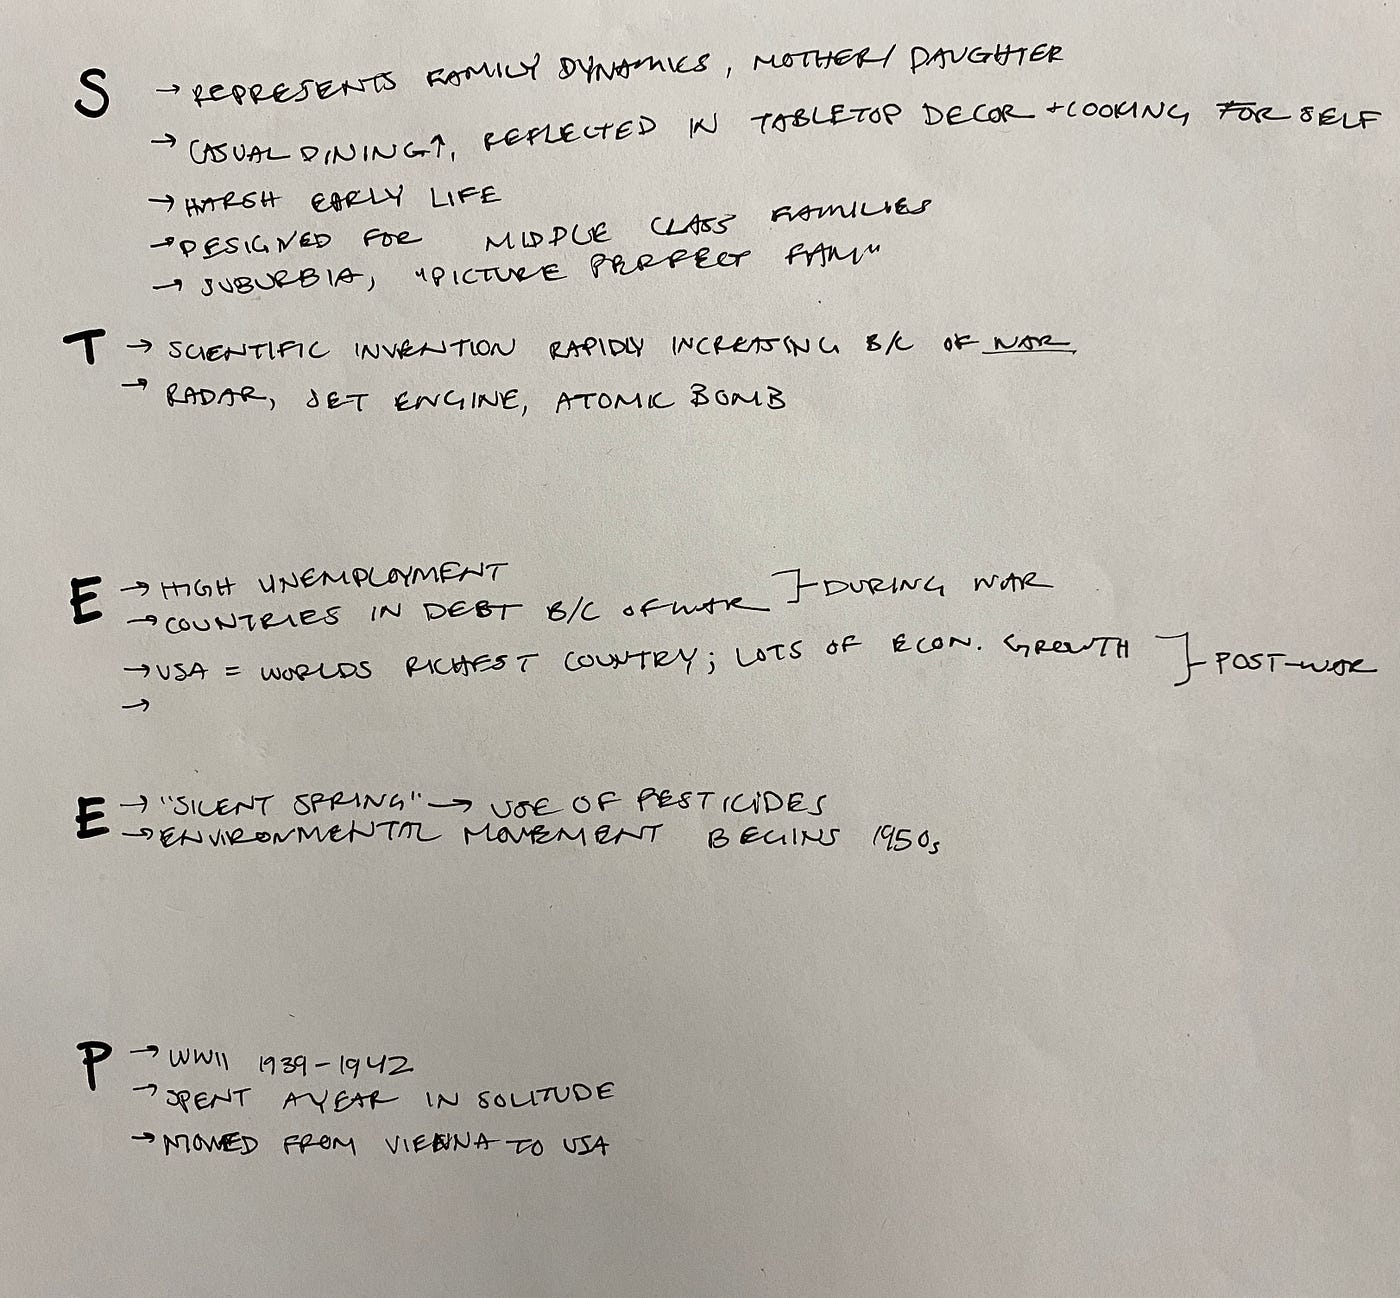 S → REPRESENTS FAMILY DYNAMICS, MOTHER/DAUGHTER
→ CASUAL DINING↑, REFLECTED IN TABLETOP DECOR + COOKING FOR SELF
→ HARSH EARLY LIFE
→ DESIGNED FOR MIDDLE CLASS FAMILIES
→ SUBURBIA, "PICTURE PERFECT FAM"
T → SCIENTIFIC INVENTION RAPIDLY INCREASING B/C OF WAR
→ RADAR, JET ENGINE, ATOMIC BOMB
E → HIGH UNEMPLOYMENT
→ COUNTRIES IN DEBT B/C OF WAR ] DURING WAR
→ USA = WORLDS RICHEST COUNTRY; LOTS OF ECON. GROWTH ] POST-WAR
→
E → "SILENT SPRING" → USE OF PESTICIDES
→ ENVIRONMENTAL MOVEMENT BEGINS 1950s
P → WWII 1939-1942
→ SPENT A YEAR IN SOLITUDE
→ MOVED FROM VIENNA TO USA